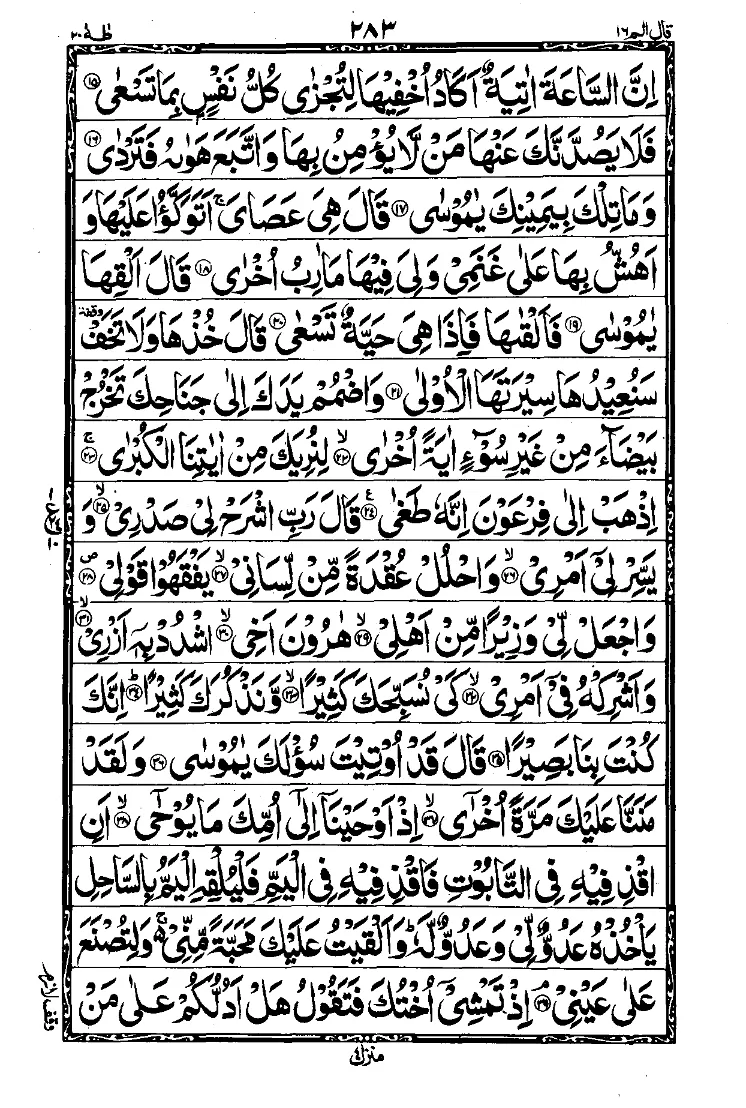 قال الم ١٦ ٢٨٣ طٰهٰ ٢٠
اِنَّ السَّاعَةَ اٰتِيَةٌ اَكَادُ اُخْفِيْهَا لِتُجْزٰى كُلُّ نَفْسٍۭ بِمَا تَسْعٰى ۝١٥
فَلَا يَصُدَّنَّكَ عَنْهَا مَنْ لَّا يُؤْمِنُ بِهَا وَاتَّبَعَ هَوٰىهُ فَتَرْدٰى ۝١٦
وَمَا تِلْكَ بِيَمِيْنِكَ يٰمُوْسٰى ۝١٧ قَالَ هِىَ عَصَاىَ ۚ اَتَوَكَّؤُا عَلَيْهَا وَ
اَهُشُّ بِهَا عَلٰى غَنَمِىْ وَلِىَ فِيْهَا مَاٰرِبُ اُخْرٰى ۝١٨ قَالَ اَلْقِهَا
يٰمُوْسٰى ۝١٩ فَاَلْقٰىهَا فَاِذَا هِىَ حَيَّةٌ تَسْعٰى ۝٢٠ قَالَ خُذْهَا وَلَا تَخَفْ وقفة
سَنُعِيْدُهَا سِيْرَتَهَا الْاُوْلٰى ۝٢١ وَاضْمُمْ يَدَكَ اِلٰى جَنَاحِكَ تَخْرُجْ
بَيْضَآءَ مِنْ غَيْرِ سُوْٓءٍ اٰيَةً اُخْرٰى ۙ۝٢٢ لِنُرِيَكَ مِنْ اٰيٰتِنَا الْكُبْرٰى ۚ۝٢٣
اِذْهَبْ اِلٰى فِرْعَوْنَ اِنَّهٗ طَغٰى ۝٢٤ ع قَالَ رَبِّ اشْرَحْ لِىْ صَدْرِىْ ۙ۝٢٥ وَ
يَسِّرْ لِىْٓ اَمْرِىْ ۙ۝٢٦ وَاحْلُلْ عُقْدَةً مِّنْ لِّسَانِىْ ۙ۝٢٧ يَفْقَهُوْا قَوْلِىْ ص۝٢٨
وَاجْعَلْ لِّىْ وَزِيْرًا مِّنْ اَهْلِىْ ۙ۝٢٩ هٰرُوْنَ اَخِى ۙ۝٣٠ اشْدُدْ بِهٖٓ اَزْرِىْ ۙ۝٣١
وَاَشْرِكْهُ فِىْٓ اَمْرِىْ ۙ۝٣٢ كَىْ نُسَبِّحَكَ كَثِيْرًا ۙ۝٣٣ وَّنَذْكُرَكَ كَثِيْرًا ؕ۝٣٤ اِنَّكَ
كُنْتَ بِنَا بَصِيْرًا ۝٣٥ قَالَ قَدْ اُوْتِيْتَ سُؤْلَكَ يٰمُوْسٰى ۝٣٦ وَلَقَدْ
مَنَنَّا عَلَيْكَ مَرَّةً اُخْرٰٓى ۙ۝٣٧ اِذْ اَوْحَيْنَآ اِلٰٓى اُمِّكَ مَا يُوْحٰٓى ۙ۝٣٨ اَنِ
اقْذِفِيْهِ فِى التَّابُوْتِ فَاقْذِفِيْهِ فِى الْيَمِّ فَلْيُلْقِهِ الْيَمُّ بِالسَّاحِلِ
يَاْخُذْهُ عَدُوٌّ لِّىْ وَعَدُوٌّ لَّهٗ ؕ وَاَلْقَيْتُ عَلَيْكَ مَحَبَّةً مِّنِّىْ ۬ۚ وَلِتُصْنَعَ
عَلٰى عَيْنِىْ ۘ۝٣٩ اِذْ تَمْشِىْٓ اُخْتُكَ فَتَقُوْلُ هَلْ اَدُلُّكُمْ عَلٰى مَنْ
وقف لازم
منزل ٤